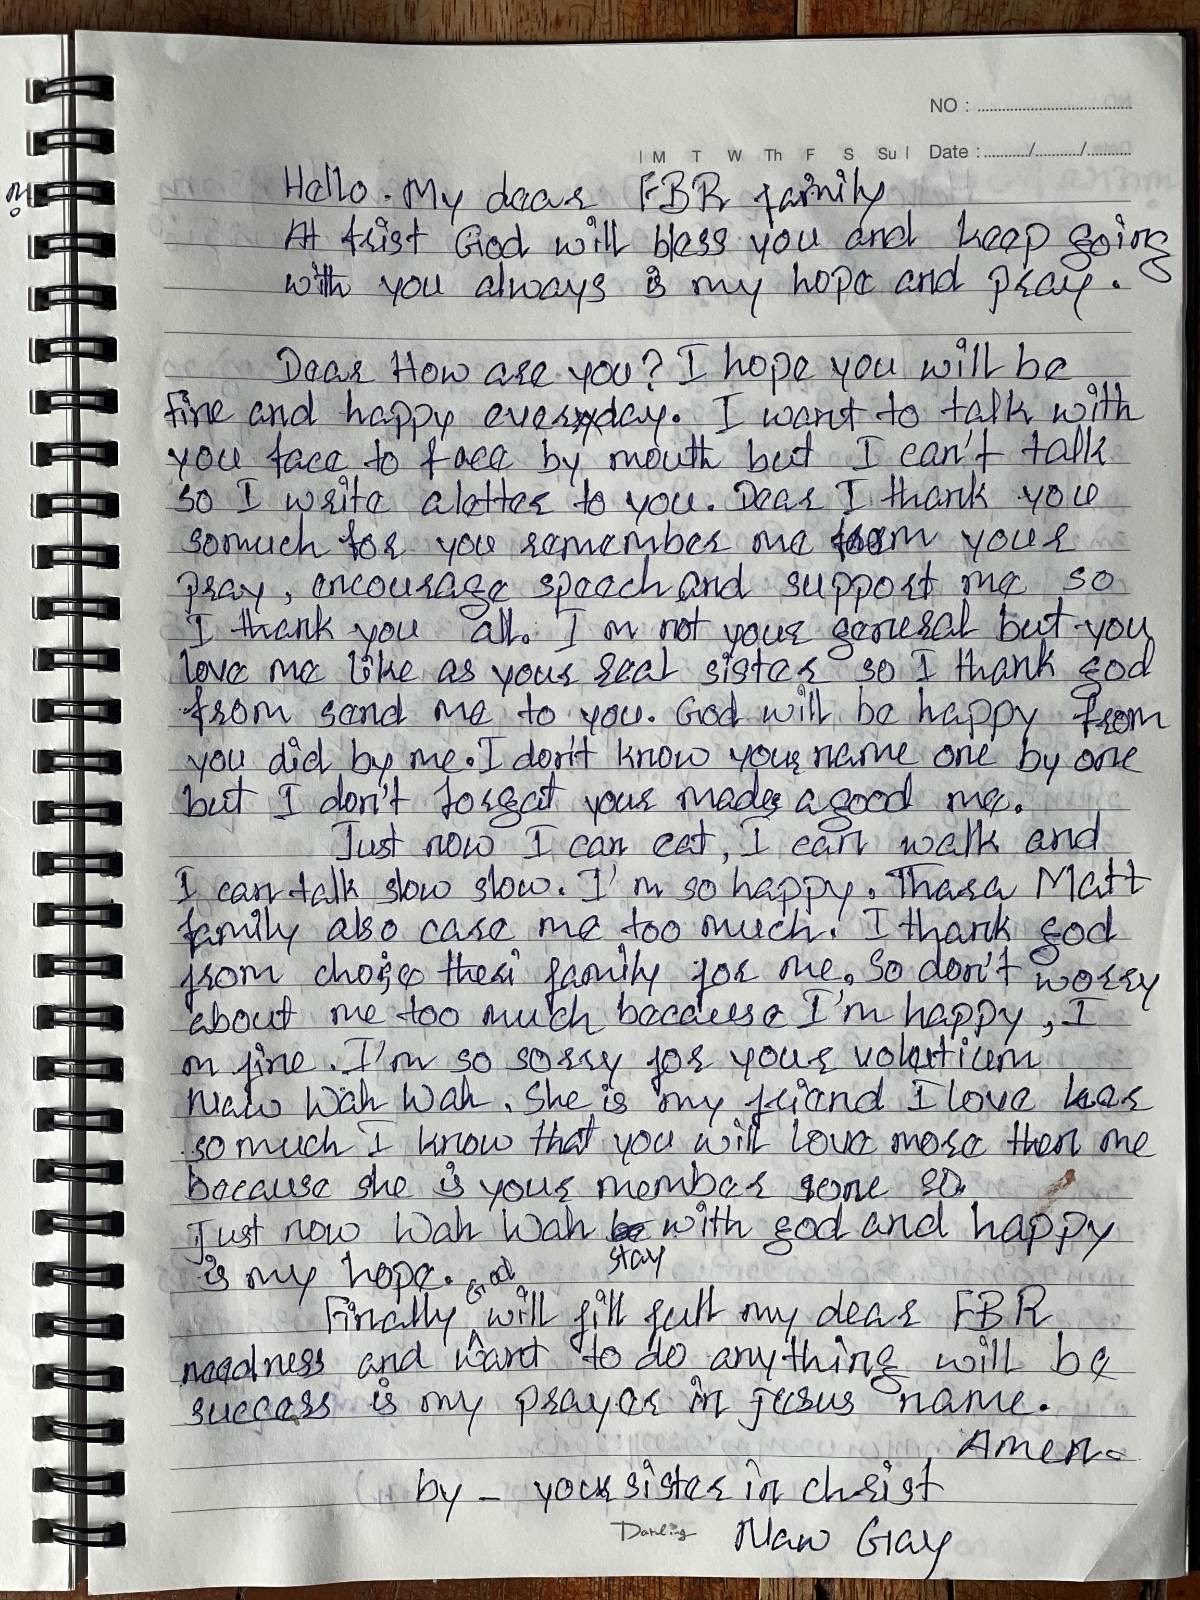 NO :
M T W Th F S Su Date : / /
Hello. My dear FBR family
At frist God will bless you and keep going
with you always is my hope and pray.
Dear How are you? I hope you will be
fine and happy everyday. I want to talk with
you face to face by mouth but I can't talk
so I write a letter to you. Dear I thank you
somuch for you remember me from your
pray, encourage speech and support me so
I thank you all. I m not your general but you
love me like as your real sister so I thank god
from send me to you. God will be happy from
you did by me. I don't know your name one by one
but I don't forget your made a good me.
Just now I can eat, I can walk and
I can talk slow slow. I'm so happy. Thara Matt
family also care me too much. I thank god
from choice thesi family for me. So don't worry
about me too much because I'm happy, I
m fine. I'm so sorry for your
Naw Wah Wah. She is my friend I love her
so much I know that you will love more then me
because she is your member gone so.
Just now Wah Wah stay with god and happy
is my hope.
Finally God will fill full my dear FBR
needness and want to do anything will be
success is my prayer in Jesus name.
Amen.
by - your sister in christ
Darling Naw Gay